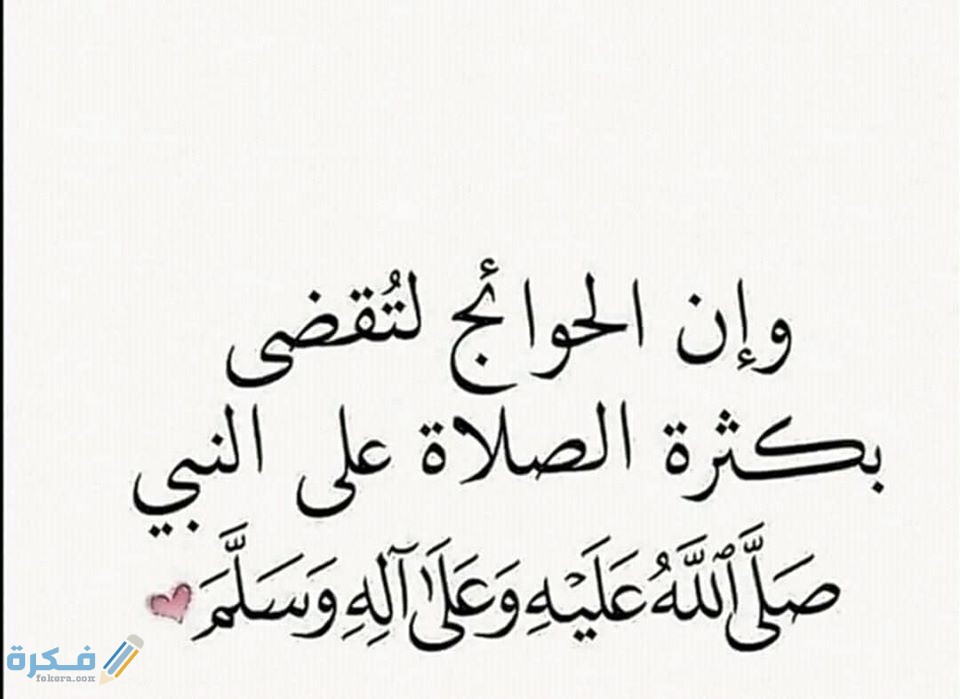 وإن الحوائج لتُقضى
بكثرة الصلاة على النبي
صَلَّى ٱللَّهُ عَلَيْهِ وَعَلَىٰ آلِهِ وَسَلَّمَ
فكرة
fekera.com